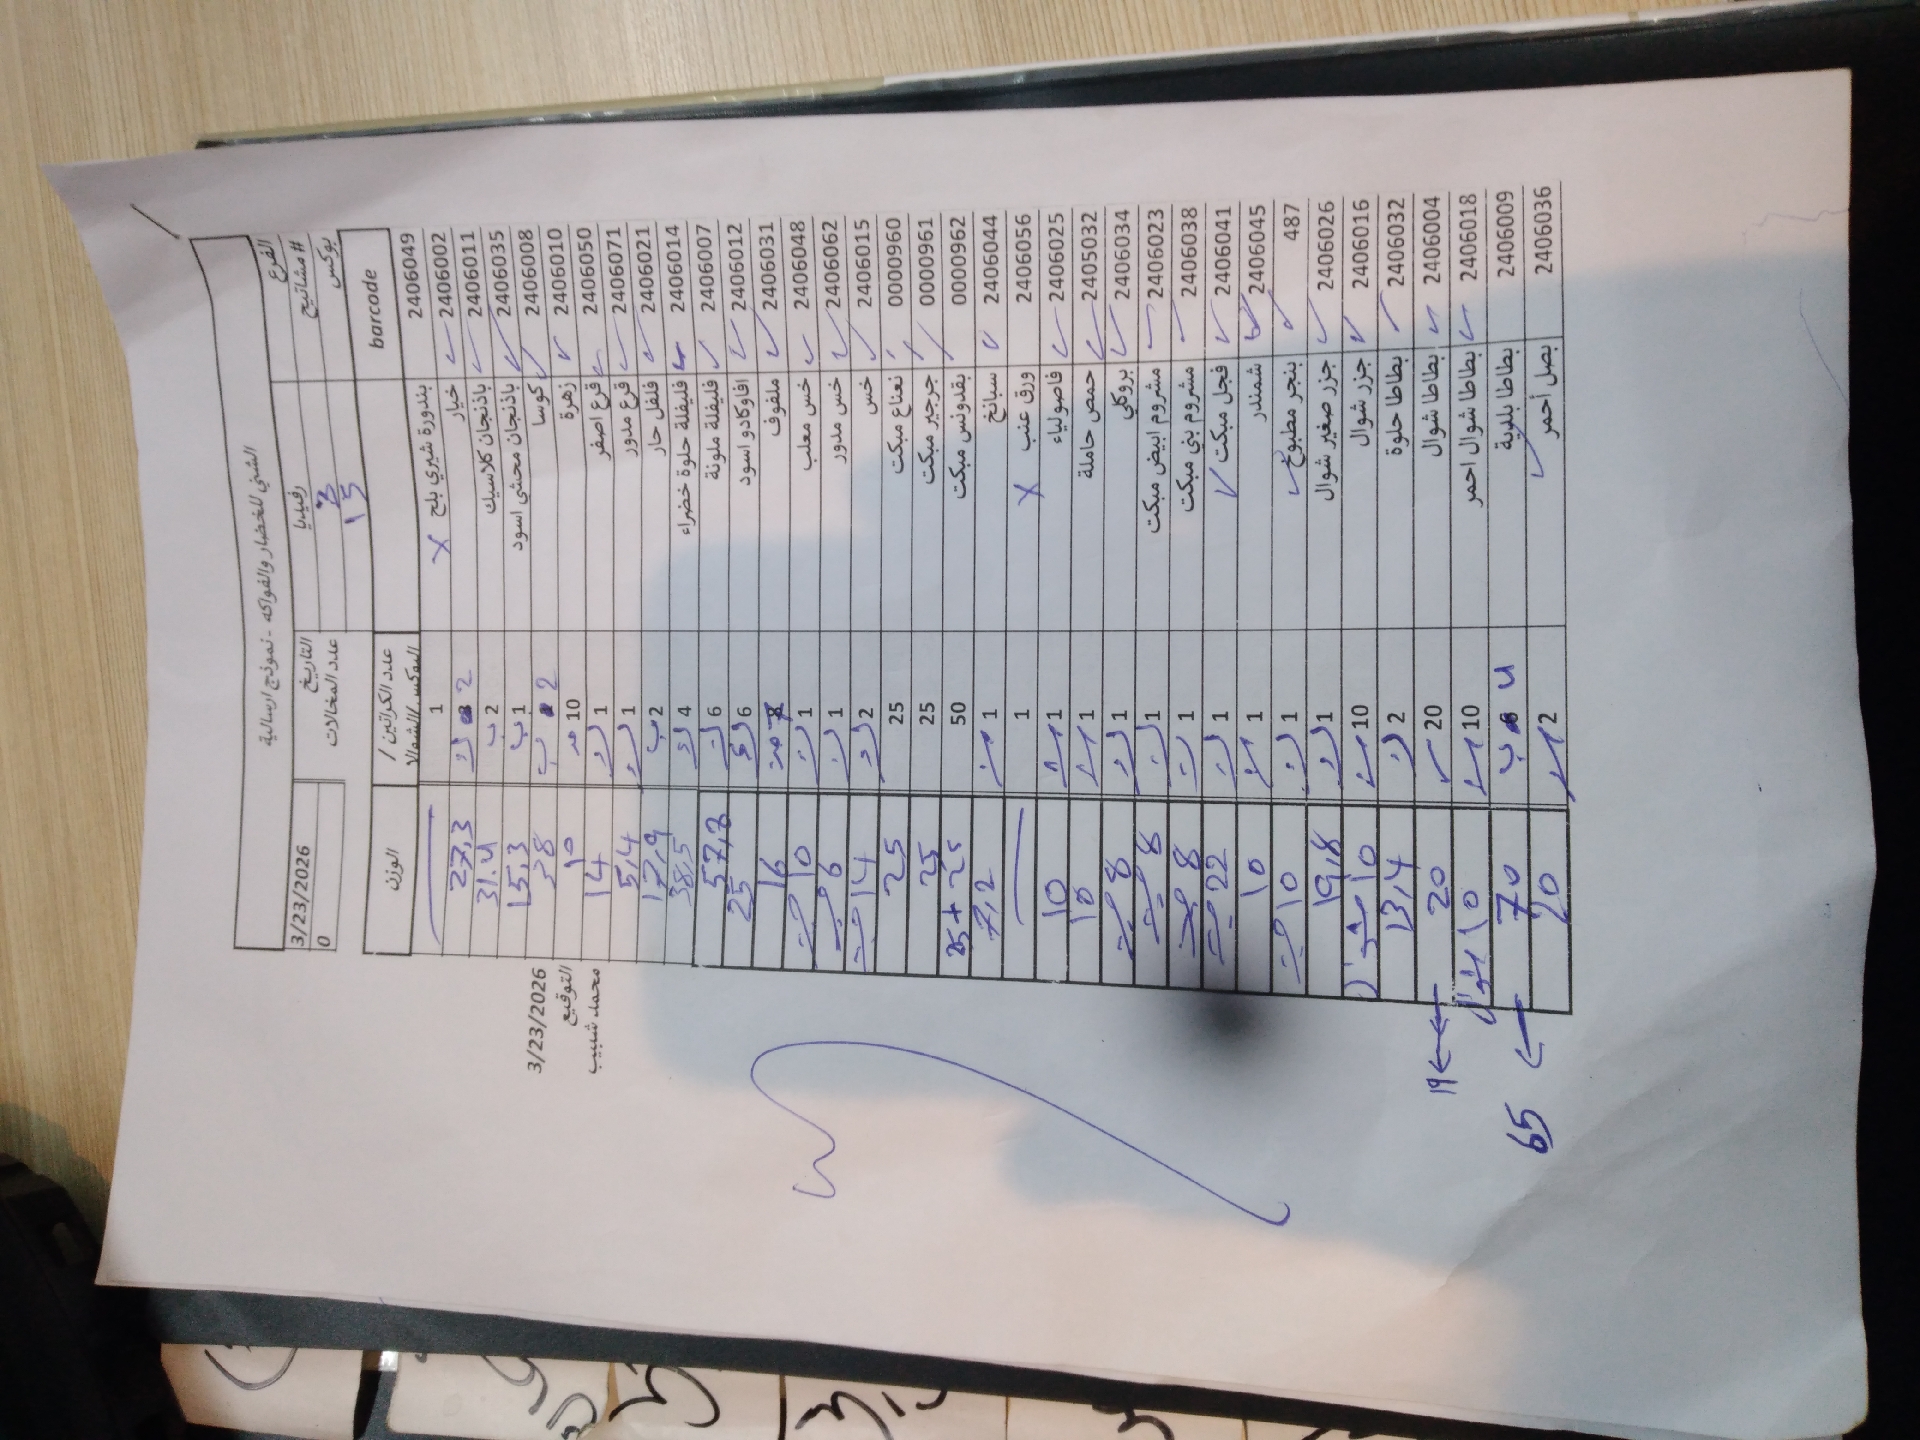 الشني للخضار والفواكه - نموذج ارسالية
الفرع رفيديا التاريخ 3/23/2026
# مشاتيح 3 عدد المخالات 0
بوكس 15
barcode عدد الكراتين / البوكس/الشوالا الوزن
2406049 بندورة شيري بلح X 1
2406002 خيار 2 27,3
2406011 باذنجان كلاسيك 2 ب 31.4
2406035 باذنجان محشي اسود 1 ب 15,3
2406008 كوسا 2 ب 38
2406010 زهرة 10 10
2406050 قرع اصفر 1 14
2406071 قرع مدور 1 5,4
2406021 فلفل حار 2 ب 17,9
2406014 فليفلة حلوة خضراء 4 38,5
2406007 فليفلة ملونة 6 57,8
2406012 افاوكادو اسود 6 25
2406031 ملفوف 16
2406048 خس معلب 1 10
2406062 خس مدور 1 6
2406015 خس 2 14
00000960 نعناع مبكت 25 25
00000961 جرجير مبكت 25 25
00000962 بقدونس مبكت 50 25+25
2406044 سبانخ 1 7,2
2406056 ورق عنب X 1
2406025 فاصولياء 1 10
2405032 حمص حاملة 1 10
2406034 بروكلي 1 8
2406023 مشروم ابيض مبكت 1 8
2406038 مشروم بني مبكت 1 8
2406041 فجل مبكت 1 22
2406045 شمندر 1 10
487 بنجر مطبوخ 1 10
2406026 جزر صغير شوال 1 19,8
2406016 جزر شوال 10 10 شوال
2406032 بطاطا حلوة 2 13,4
2406004 بطاطا شوال 20 20 19
2406018 بطاطا شوال احمر 10 10 شوال
2406009 بطاطا بلدية ب 70 65
2406036 بصل أحمر 2 20
3/23/2026
التوقيع
محمد شبيب